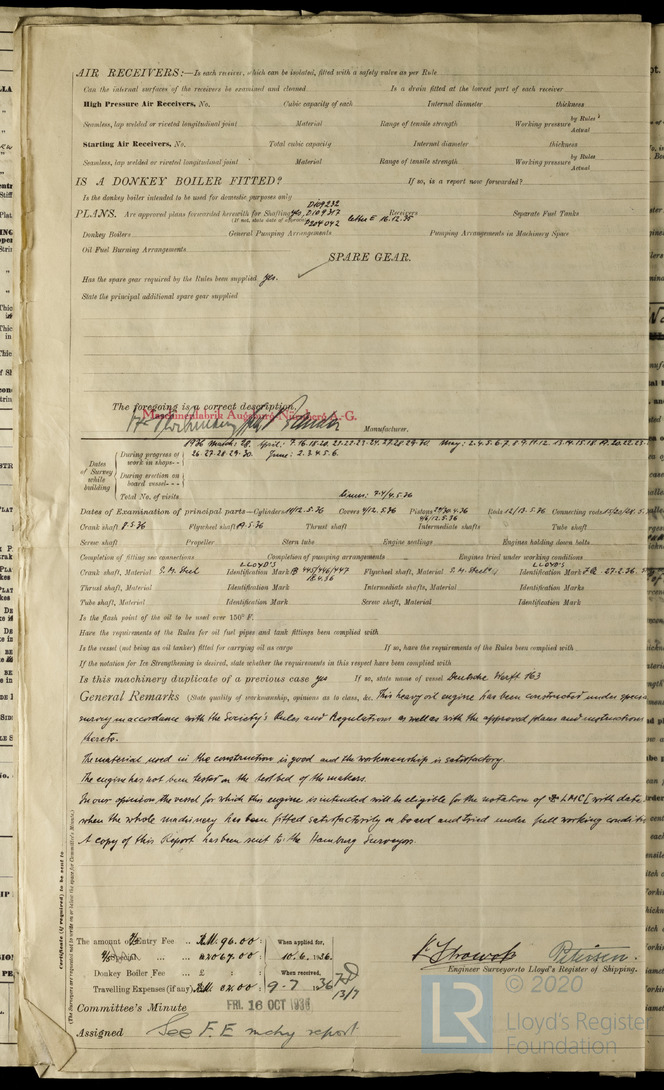 AIR RECEIVERS:—Is each receiver, which can be isolated, fitted with a safety valve as per Rule
Can the internal surfaces of the receivers be examined and cleaned Is a drain fitted at the lowest part of each receiver
High Pressure Air Receivers, No. Cubic capacity of each Internal diameter thickness
Seamless, lap welded or riveted longitudinal joint Material Range of tensile strength Working pressure by Rules Actual
Starting Air Receivers, No. Total cubic capacity Internal diameter thickness
Seamless, lap welded or riveted longitudinal joint Material Range of tensile strength Working pressure by Rules Actual
IS A DONKEY BOILER FITTED? If so, is a report now forwarded?
Is the donkey boiler intended to be used for domestic purposes only
D109232
PLANS. Are approved plans forwarded herewith for Shafting yes, D109317 letter E 16.12.35 Receivers Separate Fuel Tanks
(If not, state date of approval) 204042
Donkey Boilers General Pumping Arrangements Pumping Arrangements in Machinery Space
Oil Fuel Burning Arrangements
SPARE GEAR.
Has the spare gear required by the Rules been supplied yes.
State the principal additional spare gear supplied
The foregoing is a correct description,
Maschinenfabrik Augsburg-Nürnberg A.-G.
Manufacturer.
Dates of Survey while building
During progress of work in shops - - 1936 March: 28, April: 7. 16. 18. 20. 21. 22. 23. 24. 27. 28. 29. 30. May: 2. 4. 5. 6. 7. 8. 9. 11. 12. 13. 14. 15. 18. 19. 20. 22. 23.
26. 27. 28. 29. 30. June: 2. 3. 4. 5. 6.
During erection on board vessel - - -
Total No. of visits
Dates of Examination of principal parts—Cylinders 11/12.5.36 Covers 9/12.5.36 Pistons 29/30.4.36 Rods 12/13.5.36 Connecting rods
Crank shaft 8.5.36 Flywheel shaft 19.5.36 Thrust shaft Intermediate shafts Tube shaft
Screw shaft Propeller Stern tube Engine seatings Engines holding down bolts
Completion of fitting sea connections Completion of pumping arrangements Engines tried under working conditions
Crank shaft, Material S.M. Steel Identification Mark LLOYD'S 445/446/447 18.4.36 Flywheel shaft, Material S.M. Steel Identification Mark LLOYD'S 27.2.36
Thrust shaft, Material Identification Mark Intermediate shafts, Material Identification Marks
Tube shaft, Material Identification Mark Screw shaft, Material Identification Mark
Is the flash point of the oil to be used over 150° F.
Have the requirements of the Rules for oil fuel pipes and tank fittings been complied with
Is the vessel (not being an oil tanker) fitted for carrying oil as cargo If so, have the requirements of the Rules been complied with
If the notation for Ice Strengthening is desired, state whether the requirements in this respect have been complied with
Is this machinery duplicate of a previous case yes If so, state name of vessel Deutsche Werft 163
General Remarks (State quality of workmanship, opinions as to class, &c. This heavy oil engine has been constructed under special
survey in accordance with the Society's Rules and Regulations as well as with the approved plans and instructions
thereto.
The material used in the construction is good and the workmanship is satisfactory.
The engine has not been tested on the testbed of the makers.
In our opinion, the vessel for which this engine is intended will be eligible for the notation of LMC [with date]
when the whole machinery has been fitted satisfactorily on board and tried under full working conditions
A copy of this Report has been sent to the Hamburg Surveyors.
Certificate (if required) to be sent to
(The Surveyors are requested not to write on or below the space for Committee's Minute.)
The amount of Entry Fee .. R.M. 96.00 : When applied for,
Special ... .. 2067.00 : 10.6.1936.
Donkey Boiler Fee ... £ : : When received,
Travelling Expenses (if any) R.M. 52.00 : 9-7 1936
13/7
Petersen.
Engineer Surveyors to Lloyd's Register of Shipping.
Committee's Minute FRI. 16 OCT 1936
Assigned See F.E. mchy report
© 2020
LR
Lloyd's Register
Foundation